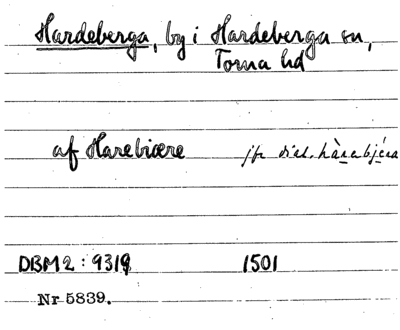 Hardeberga, by i Hardeberga sn,
Torna hd
af Harebiære jfr dial. hàrabjéra
DBM2: 9319 1501
Nr 5839.